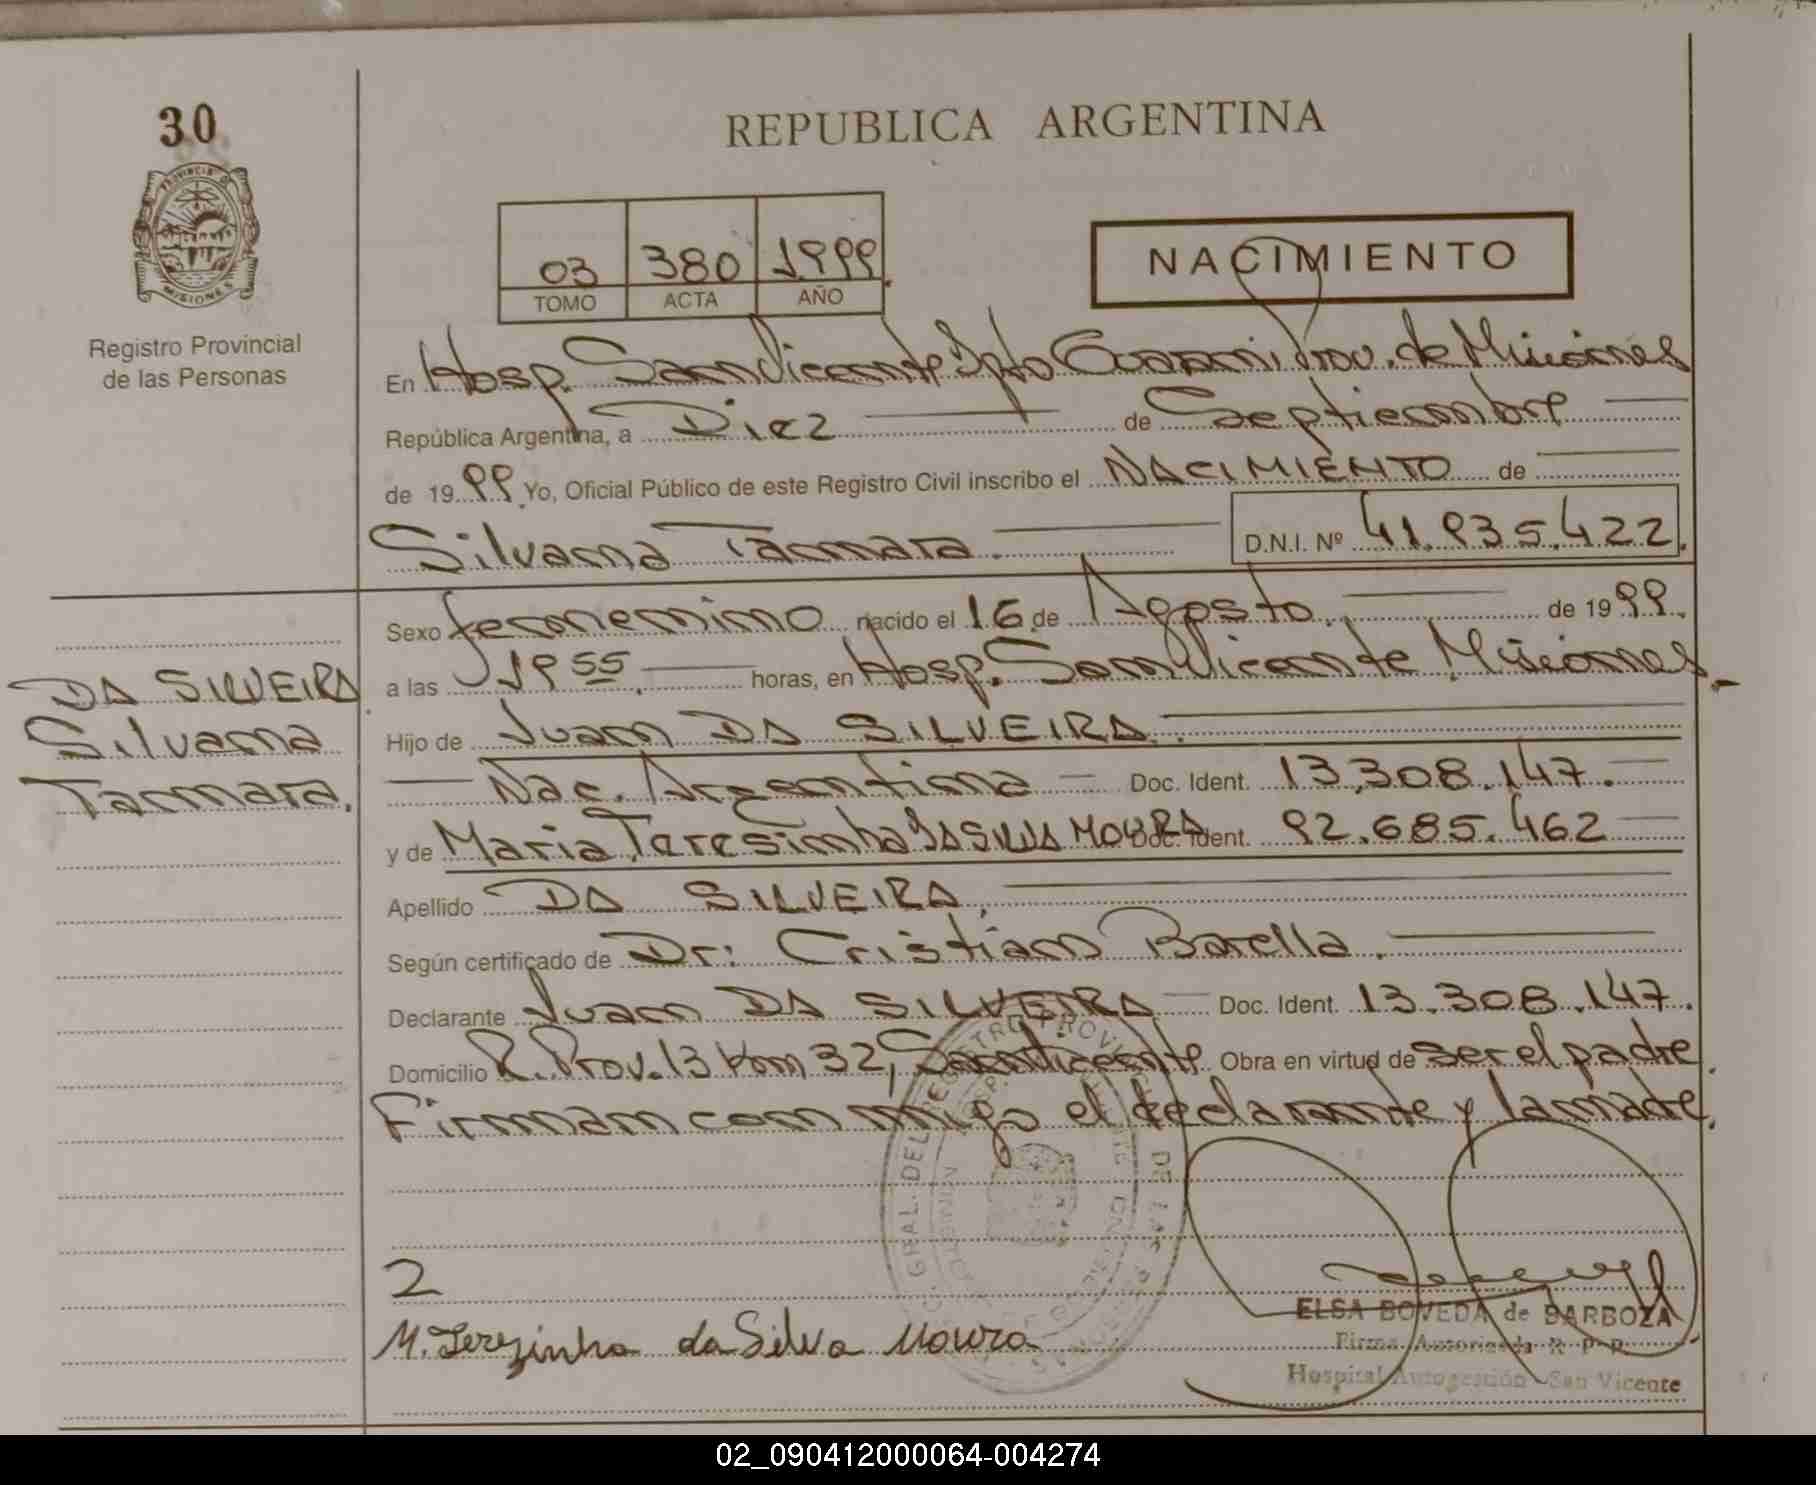 30
REPUBLICA ARGENTINA
PROVINCIA D
MISIONES
Registro Provincial
de las Personas
03 380 1999
TOMO ACTA AÑO
NACIMIENTO
En Hosp. San Vicente Dpto Guarani Prov. de Misiones
República Argentina, a Diez de Septiembre
de 1999 Yo, Oficial Público de este Registro Civil inscribo el NACIMIENTO de
Silvana Tamara. D.N.I. Nº 41.935.422.
Sexo femenino nacido el 16 de Agosto. de 1999.
DA SILVEIRA
Silvana
Tamara.
a las 19 55 horas, en Hosp. San Vicente Misiones.
Hijo de Juan DA SILVEIRA.
Nac. Argentina Doc. Ident. 13.308.147.
y de Maria Teresinha DA SILVA MOURA Doc. Ident. 92.685.462
Apellido DA SILVEIRA.
Según certificado de Dr: Cristian Barella.
Declarante Juan DA SILVEIRA Doc. Ident. 13.308.147.
Domicilio R. Prov. 13 Km 32, San Vicente Obra en virtud de ser el padre.
Firman conmigo el declarante y la madre.
2
M. Terezinha da Silva Moura
ELSA BOVEDA de BARBOZA
Firma Autorizada R P P
Hospital Autogestión San Vicente
02_090412000064-004274